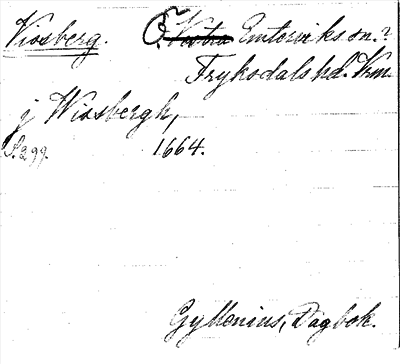 Vissberg. Ö. Västra Emterviks sn.?
Fryksdals hd. Vrm
j Wissbergh,
S. 299. 1664.
Gyllenius, Dagbok.